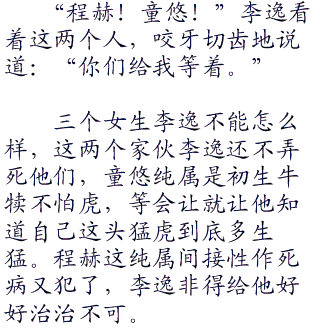 “程赫！童悠！”李逸看
着这两个人，咬牙切齿地说
道：“你们给我等着。”
三个女生李逸不能怎么
样，这两个家伙李逸还不弄
死他们，童悠纯属是初生牛
犊不怕虎，等会让就让他知
道自己这头猛虎到底多生
猛。程赫这纯属间接性作死
病又犯了，李逸非得给他好
好治治不可。